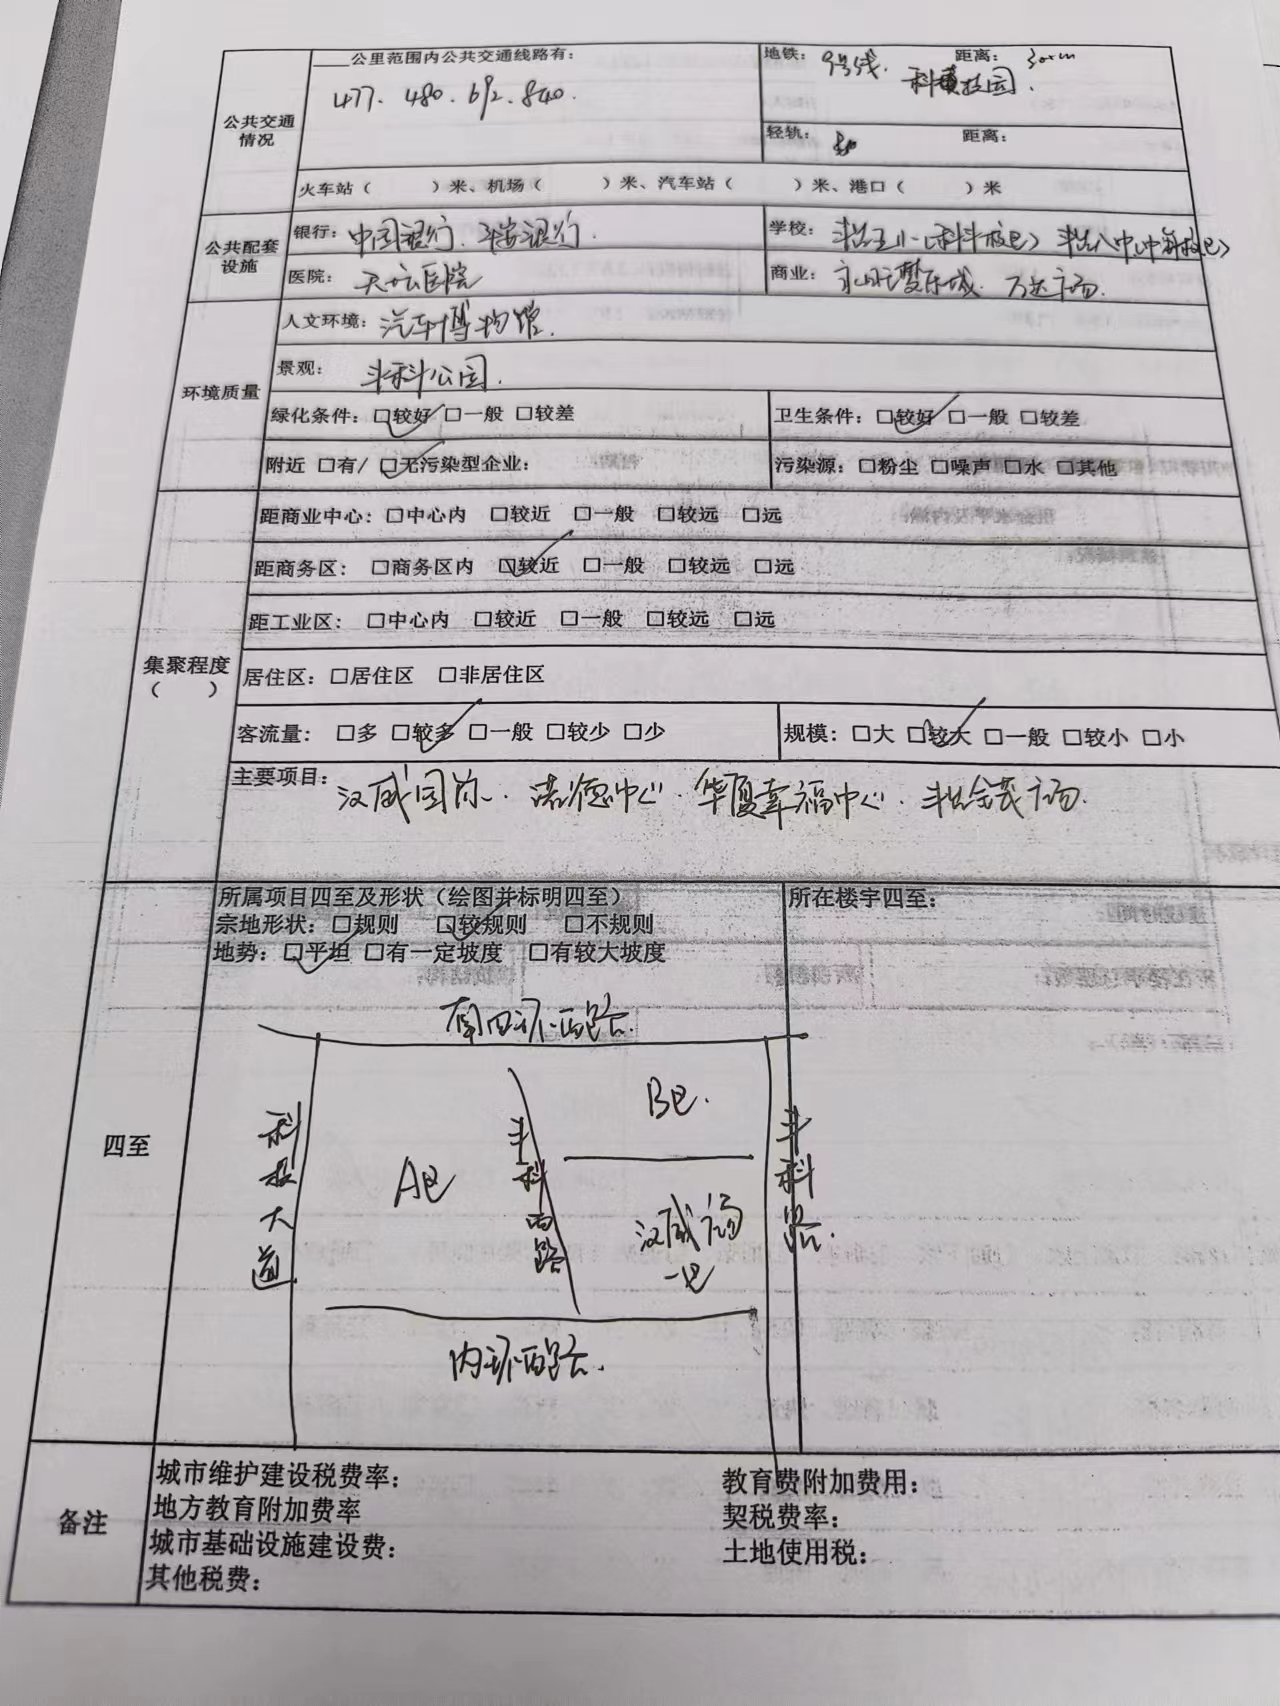 ____公里范围内公共交通线路有：
477. 480. 692. 840.
地铁： 9号线. 距离：
科技园.
公共交通情况
轻轨： 距离：
火车站（ ）米、机场（ ）米、汽车站（ ）米、港口（ ）米
公共配套设施
银行：中国银行. 平安银行.
学校：
医院：天坛医院
商业： 万达广场.
环境质量
人文环境：汽车博物馆.
景观： 丰科公园.
绿化条件：□较好✓ □一般 □较差
卫生条件：□较好✓ □一般 □较差
附近 □有/ □✓无污染型企业：
污染源：□粉尘 □噪声 □水 □其他
集聚程度（ ）
距商业中心：□中心内 □较近 □一般 □较远 □远
距商务区： □商务区内 □✓较近 □一般 □较远 □远
距工业区： □中心内 □较近 □一般 □较远 □远
居住区：□居住区 □非居住区
客流量： □多 □较多✓ □一般 □较少 □少
规模：□大 □较大✓ □一般 □较小 □小
主要项目：汉威国际. 诺德中心. 华夏幸福中心. 丰台金茂广场.
四至
所属项目四至及形状（绘图并标明四至）
宗地形状：□规则 □✓较规则 □不规则
地势：□✓平坦 □有一定坡度 □有较大坡度
所在楼宇四至：
南四环西路.
B区.
A区
科技大道
丰科西路
汉威广场
一区
丰科路.
内环西路.
备注
城市维护建设税费率：
教育费附加费用：
地方教育附加费率
契税费率：
城市基础设施建设费：
土地使用税：
其他税费：